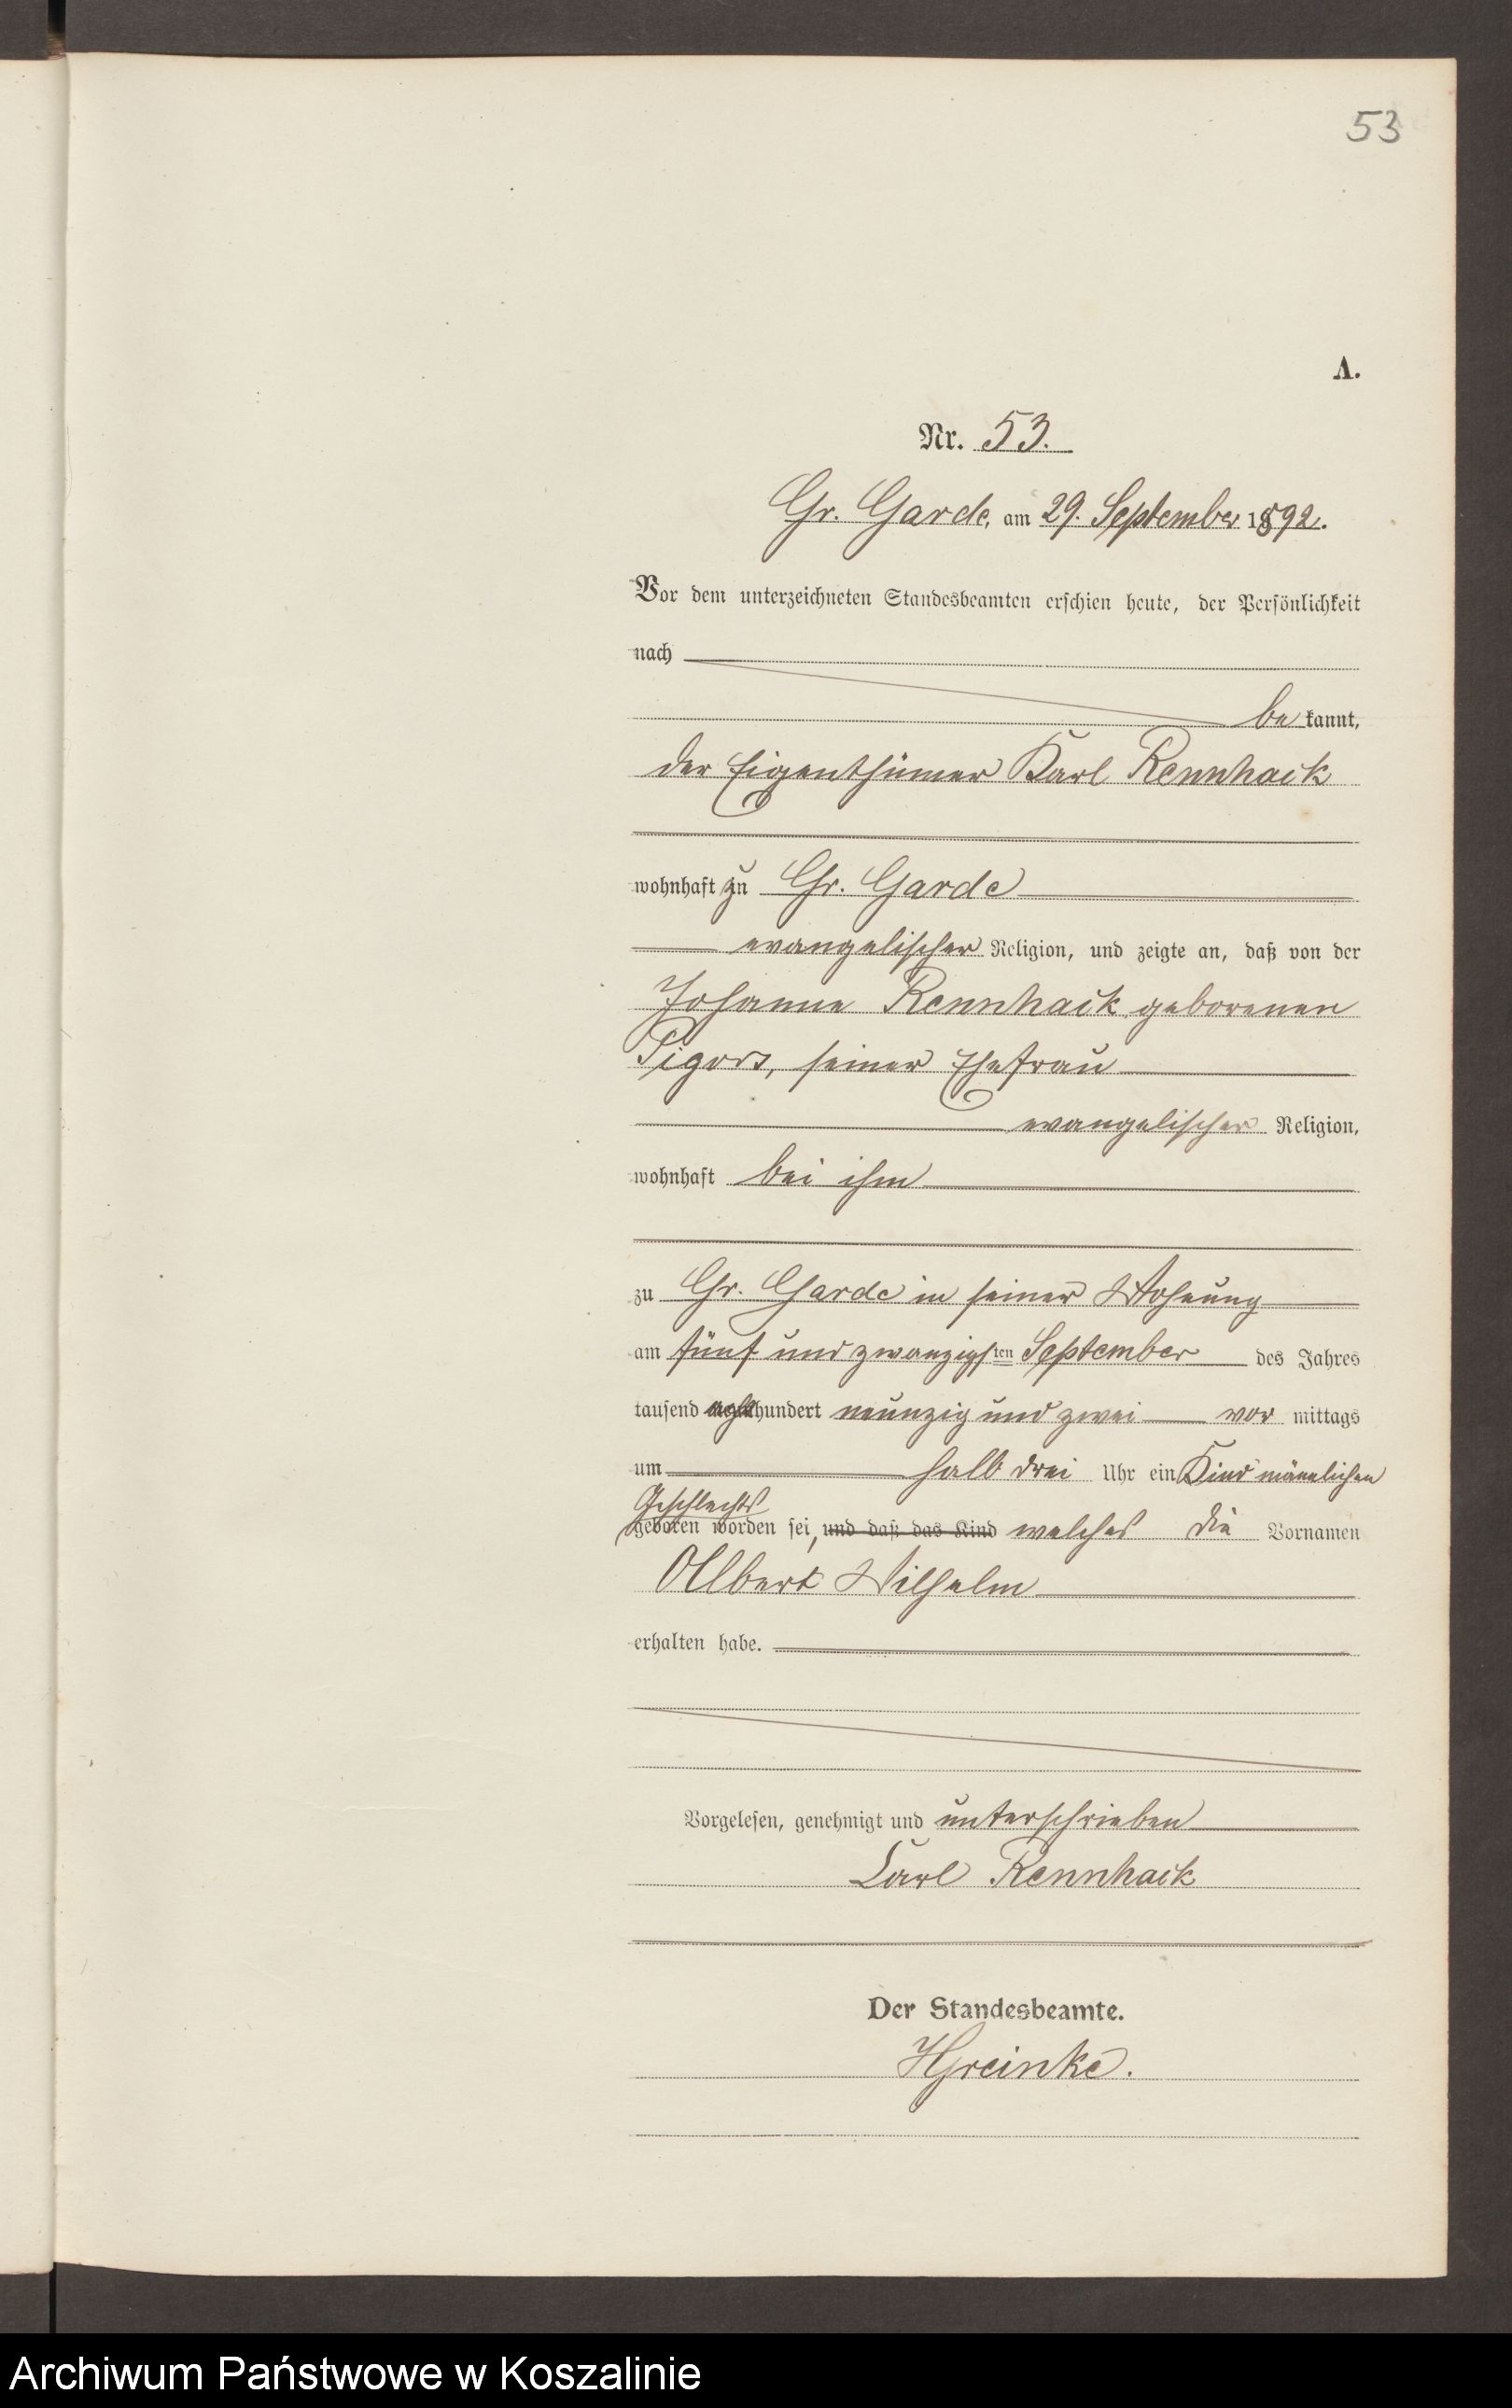 53
A.
Nr. 53.
Gr. Garde, am 29. September 1892.
Vor dem unterzeichneten Standesbeamten erschien heute, der Persönlichkeit
nach
be kannt,
der Eigenthümer Karl Rennhack
wohnhaft zu Gr. Garde
evangelischer Religion, und zeigte an, daß von der
Johanne Rennhack geborenen
Pigors, seiner Ehefrau
evangelischer Religion,
wohnhaft bei ihm
zu Gr. Garde in seiner Wohnung
am fünf und zwanzigsten September des Jahres
tausend acht hundert neunzig und zwei vor mittags
um halb drei Uhr ein Kind männlichen
Geschlechts
geboren worden sei, und daß das Kind welches die Vornamen
Albert Wilhelm
erhalten habe.
Vorgelesen, genehmigt und unterschrieben
Carl Rennhack
Der Standesbeamte.
HGreinke.
Archiwum Państwowe w Koszalinie